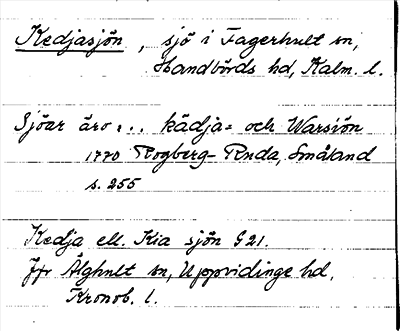 Kedjasjön, sjö i Fagerhult sn,
Handbörds hd, Kalm. l.
Sjöar äro: .. kädja= och Warsiön
1770 Rogberg-Ruda, Småland
s. 255
Kedja ell. Kia sjön G21.
Jfr Älghult sn, Uppvidinge hd,
Kronob. l.